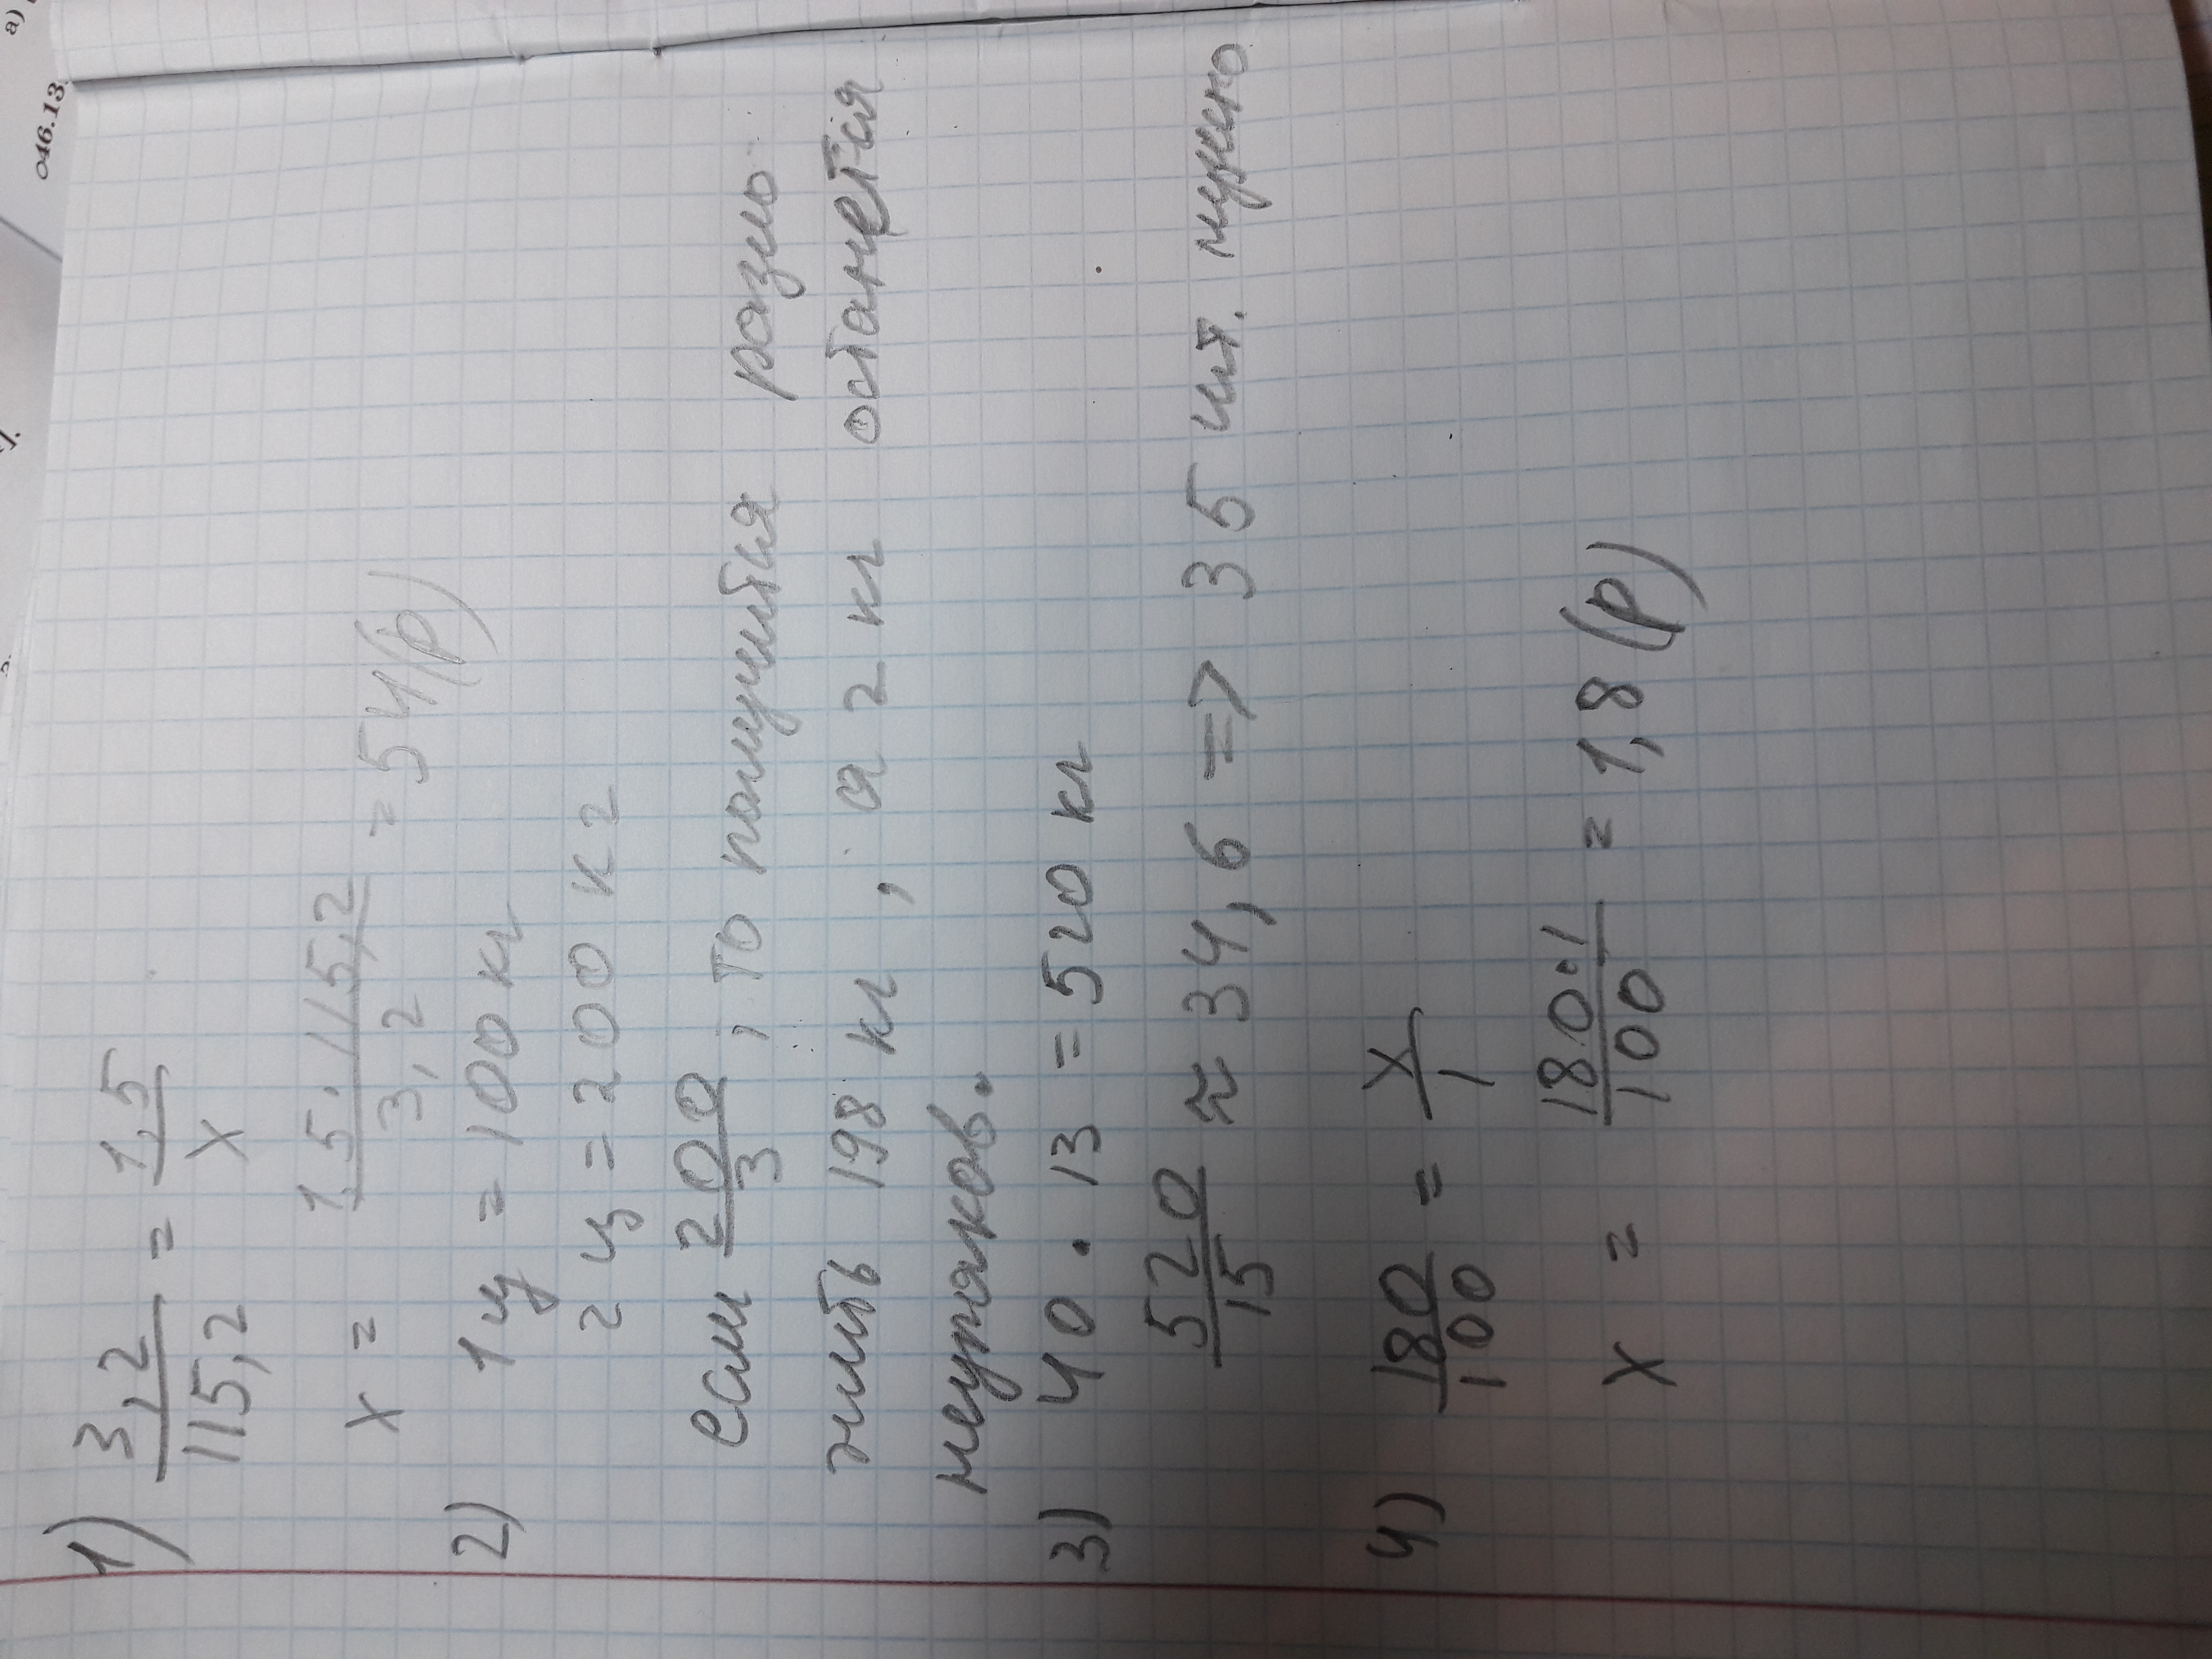 а)
046.13.
1) 3,2/115,2 = 1,5/x
x = 1,5·115,2/3,2 = 54(р)
2) 1ц = 100кг
2ц = 200кг
если 200/3, то получится разло-
жить 198 кг, а 2кг останется
неупаков.
3) 40·13 = 520кг
520/15 ≈ 34,6 => 35 шт. нужно
4) 180/100 = x/1
x = 180·1/100 = 1,8(р)